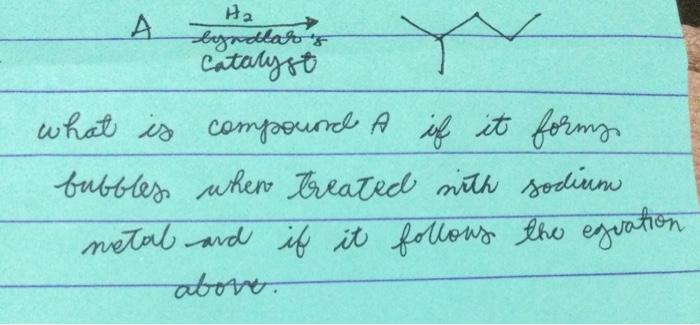 A H2
Lyndlar's
Catalyst
what is compound A if it forms
bubbles when treated with sodium
metal and if it follows the equation
above.